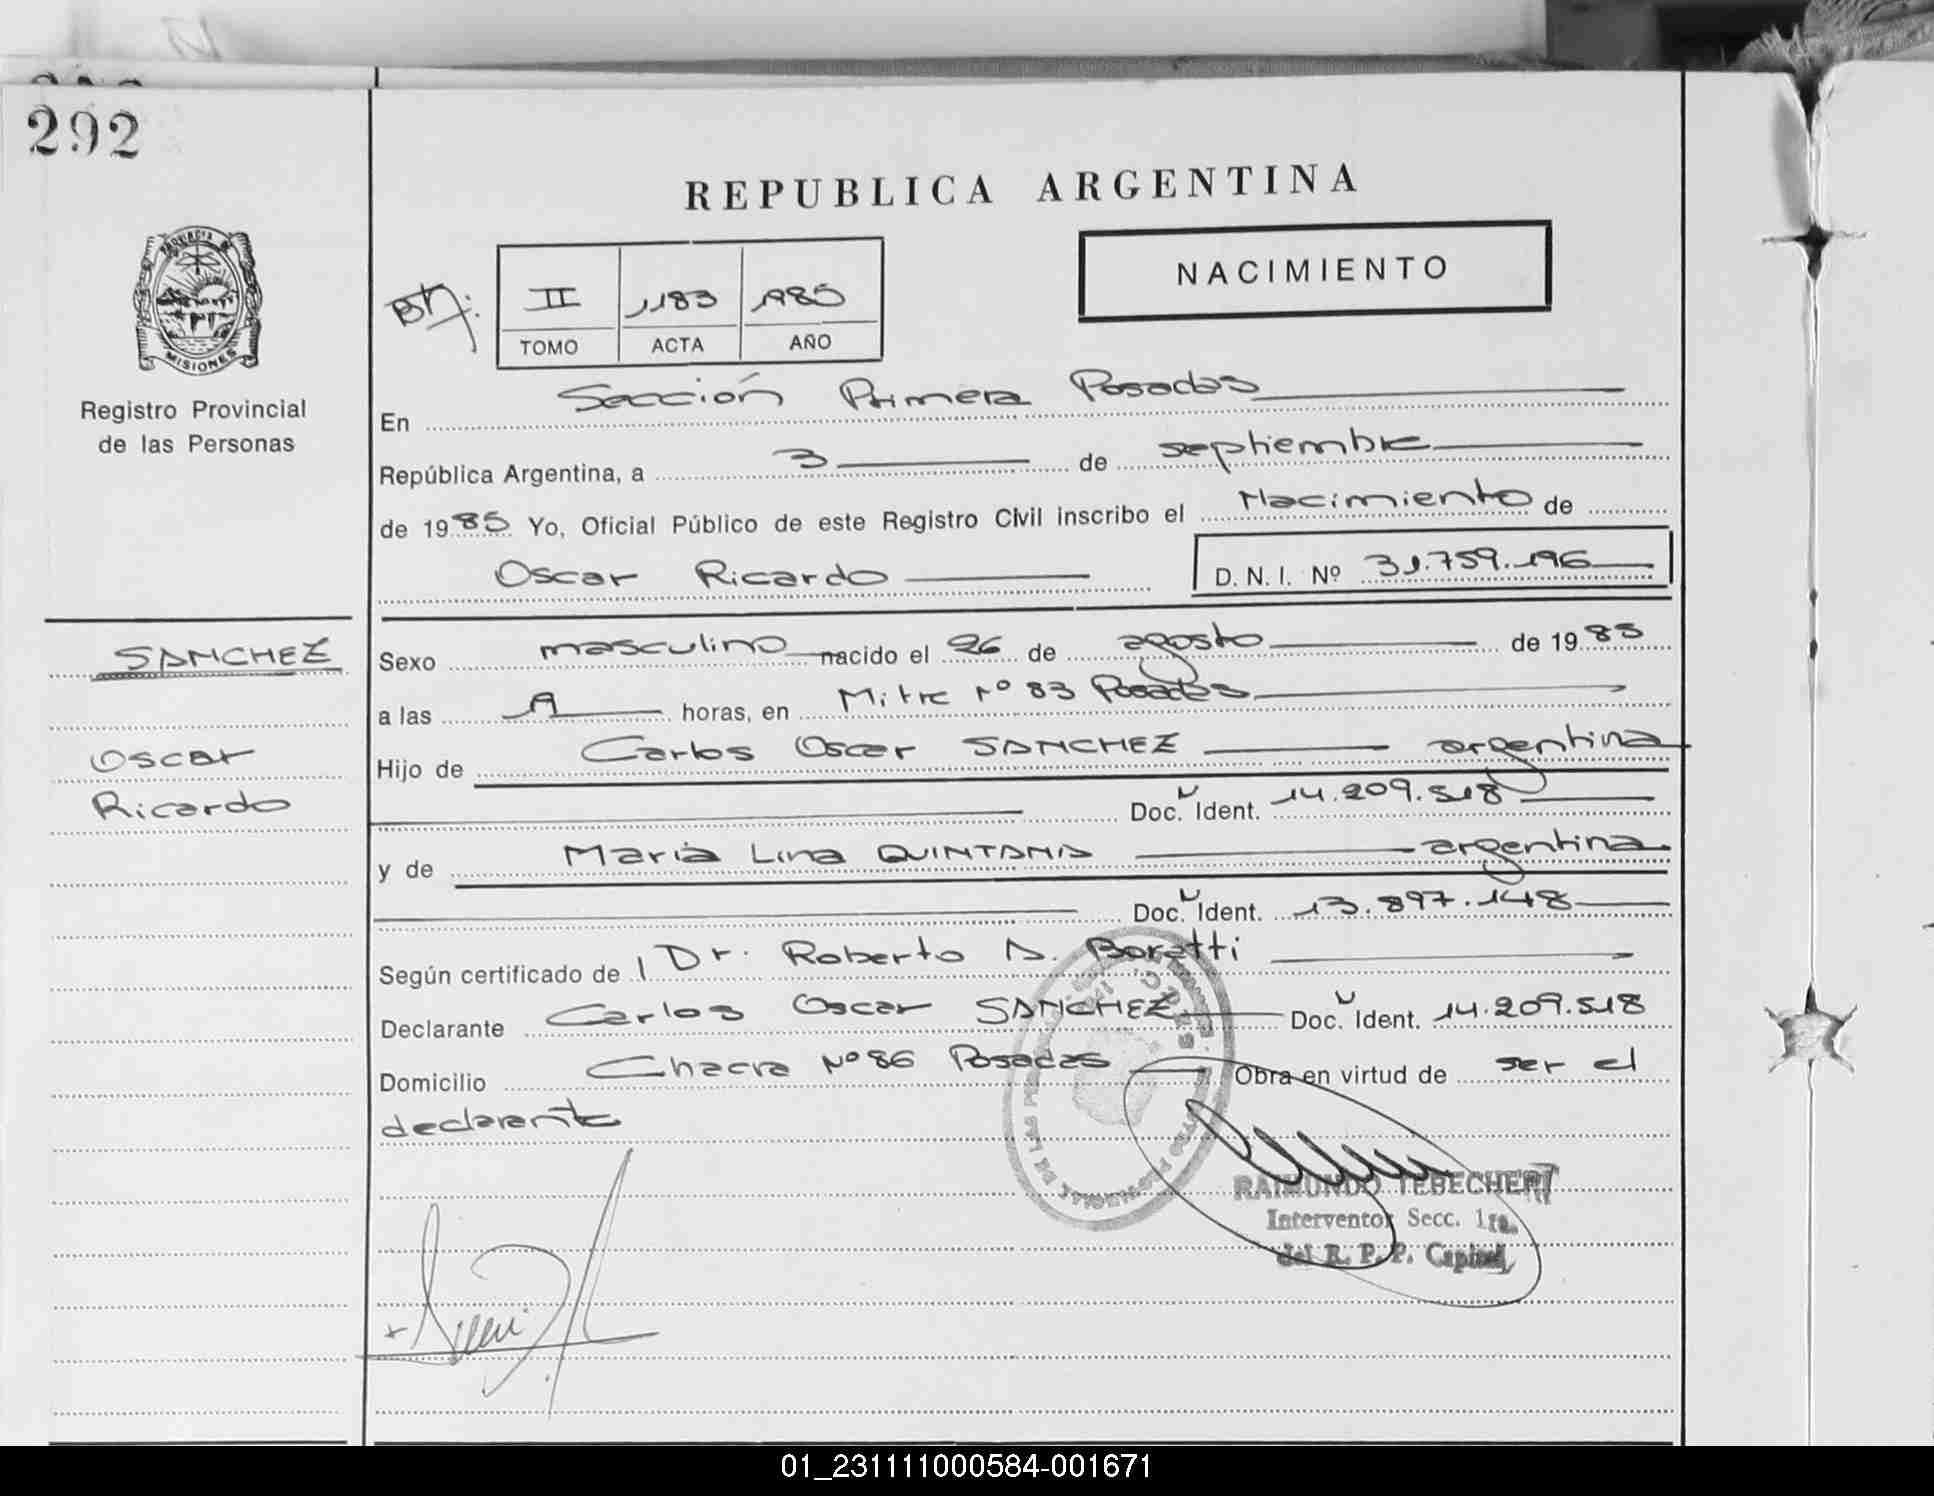 292
REPUBLICA ARGENTINA
NACIMIENTO
II 1183 1985
TOMO ACTA AÑO
PROVINCIA DE
MISIONES
Registro Provincial
de las Personas
En Sección Primera Posadas
República Argentina, a 3 de septiembre
de 1985 Yo, Oficial Público de este Registro Civil inscribo el Nacimiento de
Oscar Ricardo D. N. I. Nº 31.759.196
SANCHEZ
Oscar
Ricardo
Sexo masculino nacido el 26 de agosto de 1985
a las horas, en Mitre Nº 83 Posadas
Hijo de Carlos Oscar SANCHEZ argentina
Doc. Ident. 14.209.518
y de Maria Lina QUINTANA argentina
Doc. Ident. 13.897.148
Según certificado de Dr. Roberto A. Boratti
Declarante Carlos Oscar SANCHEZ Doc. Ident. 14.209.518
Domicilio Chacra Nº 86 Posadas Obra en virtud de ser el
declarante
RAIMUNDO TEBECHERI
Interventor Secc. 1ra.
del R. P. P. Capital
01_231111000584-001671